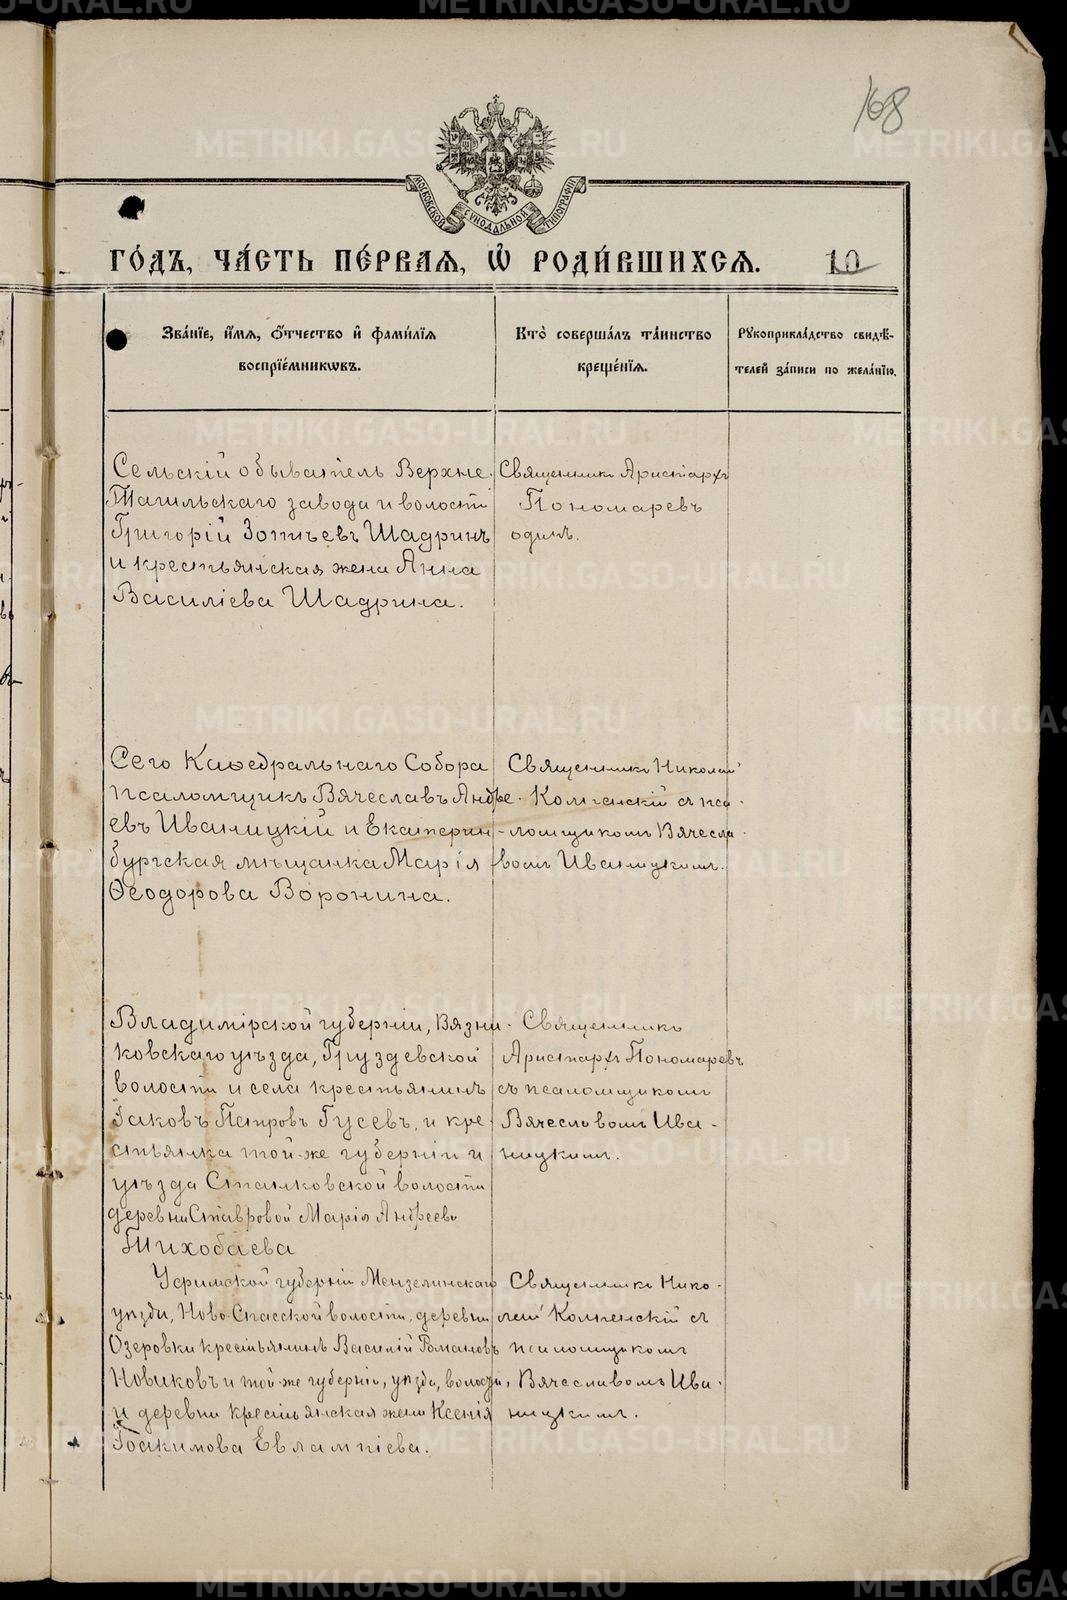 168
МОСКОВСКОЙ СѴНОДАЛЬНОЙ ТИПОГРАФІИ
ГО́ДЪ, ЧА́СТЬ ПЕ́РВАЯ, Ѡ҆ РОДИ́ВШИХСЯ. 10
Зва́нїе, и҆́мя, ѻ҆́тчество и҆ фами́лїя
воспрїе́мникѡвъ.
Кто̀ соверша́лъ та́инство
креще́нїя.
Рꙋкоприкла́дство свидѣ́-
телей за́писи по жела́нїю.
Сельскій обыватель Верхне-
Тагильскаго завода и волости
Григорій Зотѣевъ Шадринъ
и крестьянская жена Анна
Василіева Шадрина.
Священникъ Аристархъ
Пономаревъ
одинъ.
Сего Каѳедральнаго Собора
псаломщикъ Вячеславъ Андре-
евъ Иваницкій и Екатерин-
бургская мѣщанка Марія
Ѳеодорова Воронина.
Священникъ Николай
съ пса-
ломщикомъ Вячесла-
вомъ Иваницкимъ.
Владимірской губерніи, Вязни-
ковскаго уѣзда, Груздевской
волости и села крестьянинъ
Іаковъ Петровъ Гусевъ, и кре-
стьянка той-же губерніи и
уѣзда Станковской волости
деревни Ставровой Марія Андреева
Тихобаева
Священникъ
Аристархъ Пономаревъ
съ псаломщикомъ
Вячеславомъ Ива-
ницкимъ.
Уфимской губерніи Мензелинскаго
уѣзда, Ново-Спасской волости, деревни
Озеровки крестьянинъ Василій Романовъ
Новиковъ и той-же губерніи, уѣзда, волости,
и деревни крестьянская жена Ксенія
Іоакимова Евлампіева.
Священникъ Нико-
лай съ
псаломщикомъ
Вячеславомъ Ива-
ницкимъ.
METRIKI.GASO-URAL.RU